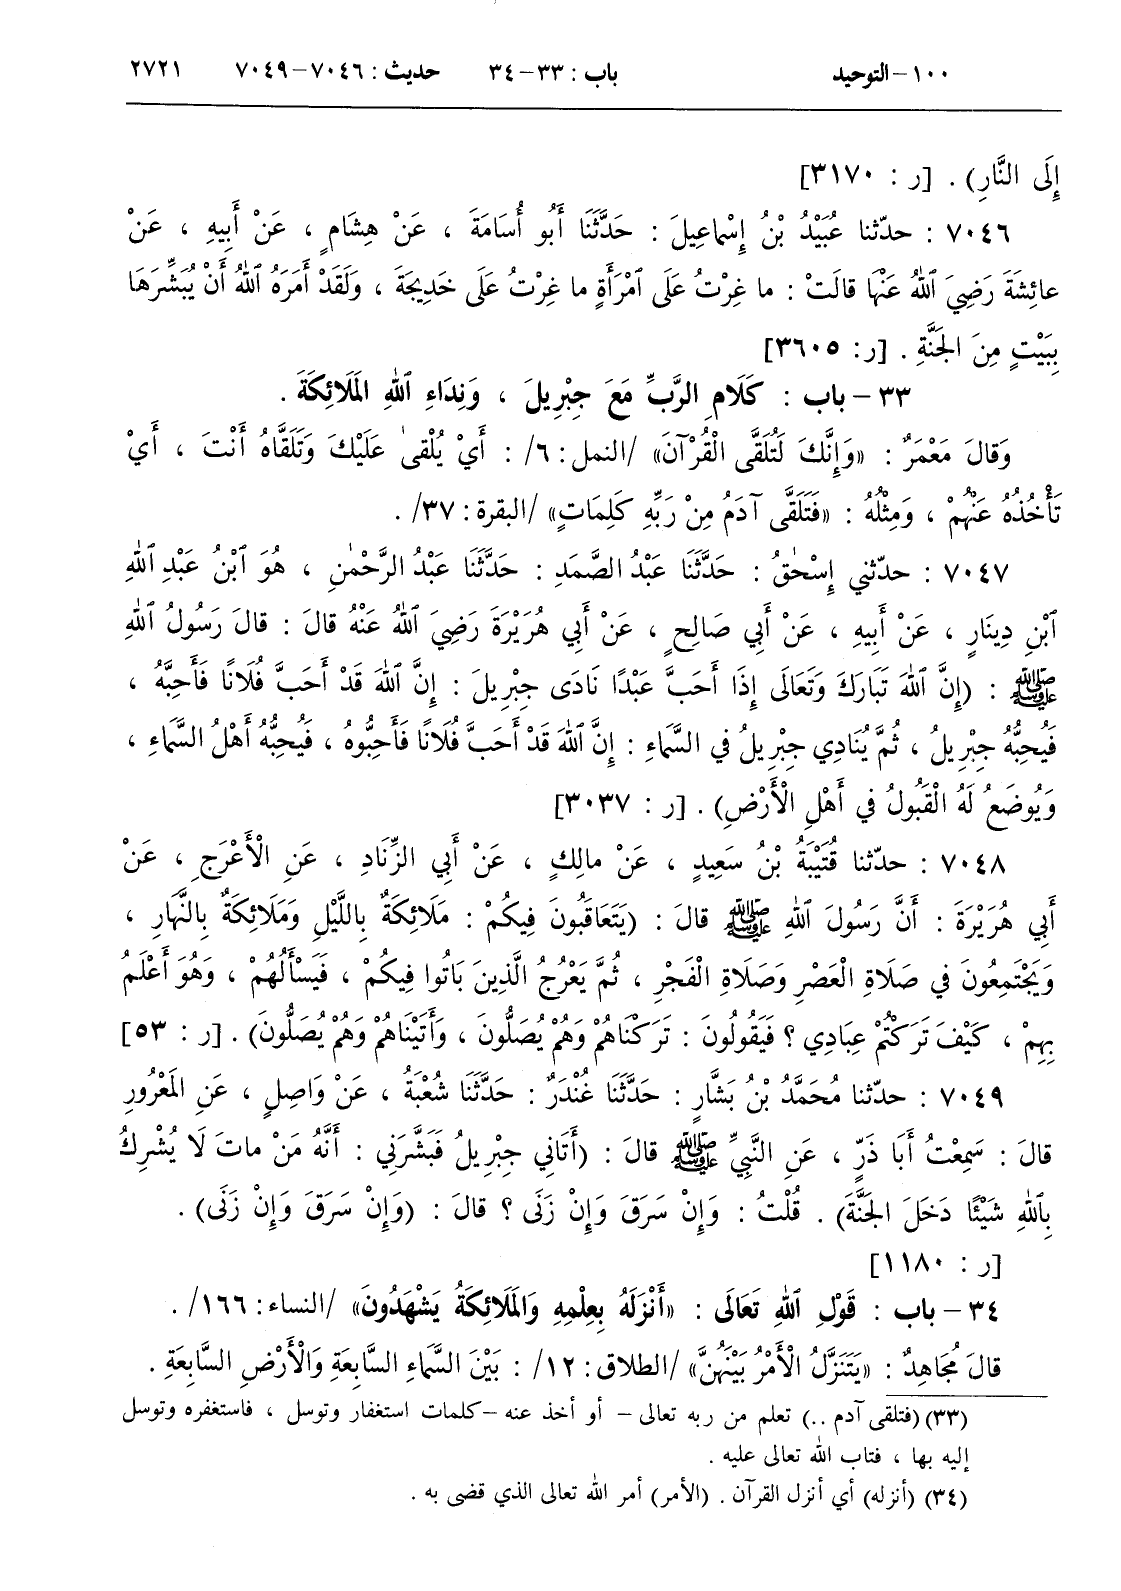 ١٠٠-التوحيد باب : ٣٣-٣٤ حديث : ٧٠٤٦-٧٠٤٩ ٢٧٢١
إِلَى النَّارِ) . [ر : ٣١٧٠]
٧٠٤٦ : حدّثنا عُبَيْدُ بْنُ إِسْماعِيلَ : حَدَّثَنَا أَبُو أُسَامَةَ ، عَنْ هِشَامٍ ، عَنْ أَبِيهِ ، عَنْ
عائِشَةَ رَضِيَ ٱللهُ عَنْهَا قالَتْ : ما غِرْتُ عَلَى ٱمْرَأَةٍ ما غِرْتُ عَلَى خَدِيجَةَ ، وَلَقَدْ أَمَرَهُ ٱللهُ أَنْ يُبَشِّرَهَا
بِبَيْتٍ مِنَ الجَنَّةِ . [ر: ٣٦٠٥]
٣٣ - باب : كَلَامِ الرَّبِّ مَعَ جِبْرِيلَ ، وَنِدَاءِ ٱللهِ المَلَائِكَةَ .
وَقالَ مَعْمَرٌ : «وَإِنَّكَ لَتُلَقَّى الْقُرْآنَ» /النمل: ٦/ : أَيْ يُلْقىٰ عَلَيْكَ وَتَلَقَّاهُ أَنْتَ ، أَيْ
تَأْخُذُهُ عَنْهُمْ ، وَمِثْلُهُ : «فَتَلَقَّى آدَمُ مِنْ رَبِّهِ كَلِمَاتٍ» /البقرة: ٣٧/ .
٧٠٤٧ : حدّثني إِسْحٰقُ : حَدَّثَنَا عَبْدُ الصَّمَدِ : حَدَّثَنَا عَبْدُ الرَّحْمٰنِ ، هُوَ ٱبْنُ عَبْدِ ٱللهِ
ٱبْنِ دِينَارٍ ، عَنْ أَبِيهِ ، عَنْ أَبِي صَالِحٍ ، عَنْ أَبِي هُرَيْرَةَ رَضِيَ ٱللهُ عَنْهُ قالَ : قالَ رَسُولُ ٱللهِ
ﷺ : (إِنَّ ٱللهَ تَبَارَكَ وَتَعَالَى إِذَا أَحَبَّ عَبْدًا نَادَى جِبْرِيلَ : إِنَّ ٱللهَ قَدْ أَحَبَّ فُلَانًا فَأَحِبَّهُ ،
فَيُحِبُّهُ جِبْرِيلُ ، ثُمَّ يُنَادِي جِبْرِيلُ في السَّماءِ : إِنَّ ٱللهَ قَدْ أَحَبَّ فُلَانًا فَأَحِبُّوهُ ، فَيُحِبُّهُ أَهْلُ السَّماءِ ،
وَيُوضَعُ لَهُ الْقَبُولُ في أَهْلِ الْأَرْضِ) . [ر : ٣٠٣٧]
٧٠٤٨ : حدّثنا قُتَيْبَةُ بْنُ سَعِيدٍ ، عَنْ مالِكٍ ، عَنْ أَبِي الزِّنَادِ ، عَنِ الْأَعْرَجِ ، عَنْ
أَبِي هُرَيْرَةَ : أَنَّ رَسُولَ ٱللهِ ﷺ قالَ : (يَتَعَاقَبُونَ فِيكُمْ : مَلَائِكَةٌ بِاللَّيْلِ وَمَلَائِكَةٌ بِالنَّهَارِ ،
وَيَجْتَمِعُونَ في صَلَاةِ الْعَصْرِ وَصَلَاةِ الْفَجْرِ ، ثُمَّ يَعْرُجُ الَّذِينَ بَاتُوا فِيكُمْ ، فَيَسْأَلُهُمْ ، وَهُوَ أَعْلَمُ
بِهِمْ ، كَيْفَ تَرَكْتُمْ عِبَادِي ؟ فَيَقُولُونَ : تَرَكْنَاهُمْ وَهُمْ يُصَلُّونَ ، وَأَتَيْنَاهُمْ وَهُمْ يُصَلُّونَ) . [ر : ٥٣]
٧٠٤٩ : حدّثنا مُحَمَّدُ بْنُ بَشَّارٍ : حَدَّثَنَا غُنْدَرٌ : حَدَّثَنَا شُعْبَةُ ، عَنْ وَاصِلٍ ، عَنِ المَعْرُورِ
قالَ : سَمِعْتُ أَبَا ذَرٍّ ، عَنِ النَّبِيِّ ﷺ قالَ : (أَتَانِي جِبْرِيلُ فَبَشَّرَنِي : أَنَّهُ مَنْ ماتَ لَا يُشْرِكُ
بِٱللهِ شَيْئًا دَخَلَ الجَنَّةَ) . قُلْتُ : وَإِنْ سَرَقَ وَإِنْ زَنَى ؟ قالَ : (وَإِنْ سَرَقَ وَإِنْ زَنَى) .
[ر : ١١٨٠]
٣٤ - باب : قَوْلِ ٱللهِ تَعَالَى : «أَنْزَلَهُ بِعِلْمِهِ وَالمَلَائِكَةُ يَشْهَدُونَ» /النساء: ١٦٦/ .
قالَ مُجَاهِدٌ : «يَتَنَزَّلُ الْأَمْرُ بَيْنَهُنَّ» /الطلاق: ١٢/ : بَيْنَ السَّماءِ السَّابِعَةِ وَالْأَرْضِ السَّابِعَةِ .
(٣٣) (فتلقى آدم ..) تعلم من ربه تعالى - أو أخذ عنه - كلمات استغفار وتوسل ، فاستغفره وتوسل
إليه بها ، فتاب الله تعالى عليه .
(٣٤) (أنزله) أي أنزل القرآن . (الأمر) أمر الله تعالى الذي قضى به .